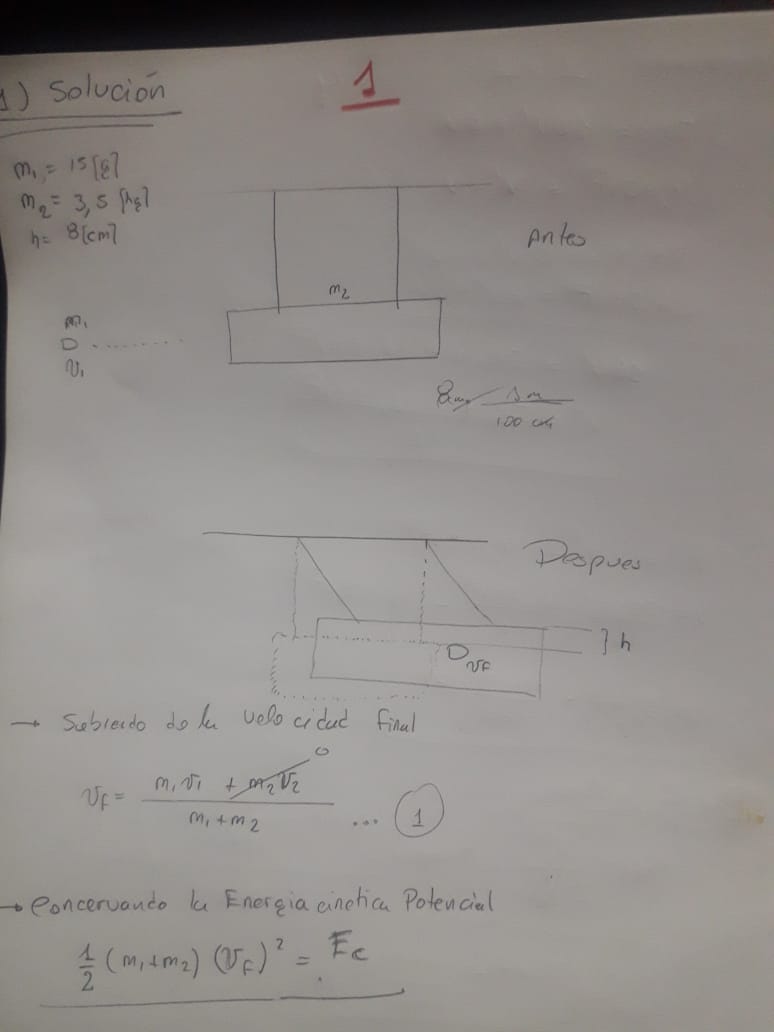 1) Solución
1
m₁ = 15 [g]
m₂ = 3,5 [kg]
h = 8 [cm]
Antes
m₂
m₁
v₁
1 m
100 cm
Despues
h
v_F
→ Sabiendo de la velocidad final
v_F = (m₁v₁ + m₂v₂) / (m₁ + m₂) ... 1
0
→ Concervando la Energia cinetica Potencial
1/2 (m₁ + m₂) (v_F)² = E_c